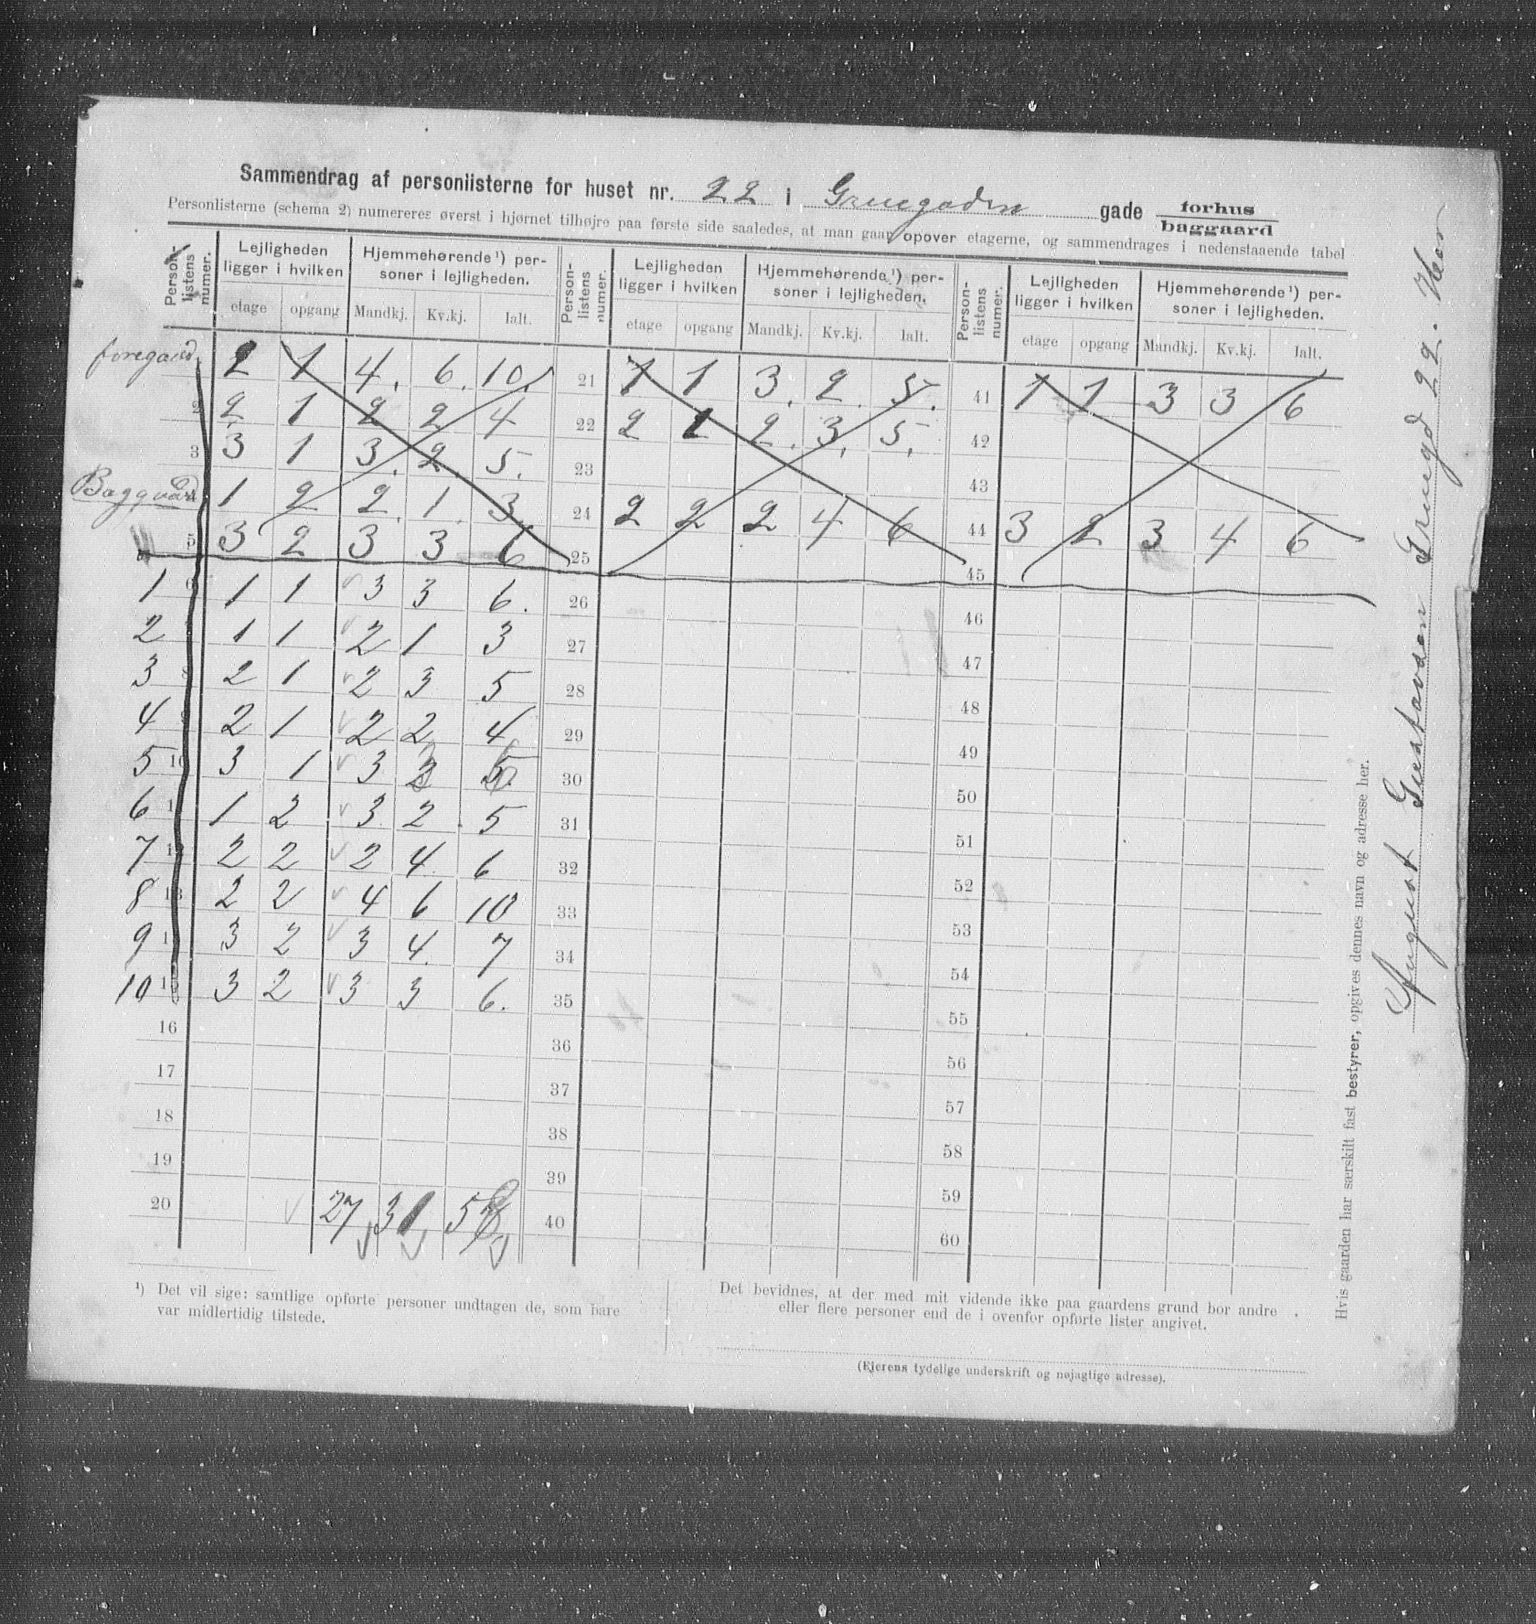 Sammendrag af personlisterne for huset nr. 22 i Gruegaden gade forhus
baggaard
Personlisterne (schema 2) numereres øverst i hjørnet tilhøjre paa første side saaledes, at man gaar opover etagerne, og sammendrages i nedenstaaende tabel
Person-listens numer. Lejligheden ligger i hvilken Hjemmehørende ¹) personer i lejligheden. Person-listens numer. Lejligheden ligger i hvilken Hjemmehørende ¹) personer i lejligheden. Person-listens numer. Lejligheden ligger i hvilken Hjemmehørende ¹) personer i lejligheden.
etage opgang Mandkj. Kv.kj. Ialt. etage opgang Mandkj. Kv.kj. Ialt. etage opgang Mandkj. Kv.kj. Ialt.
foregaard 2 1 4. 6. 10. 21 1 1 3. 2. 5. 41 1 1 3 3 6
2 2 1 2 2 4 22 2 1 2. 3, 5, 42
3 3 1 3. 2. 5. 23 43
Baggaard 1 2 2. 1. 3. 24 2 2 2 4 6 44 3 2 3 4 6
5 3 2 3 3 6 25 45
1 1 1 3 3 6. 26 46
2 1 1 2 1 3 27 47
3 2 1 2 3 5 28 48
4 2 1 2 2 4 29 49
5 10 3 1 3 3 30 50
6 1 2 3 2 5 31 51
7 2 2 2 4 6 32 52
8 2 2 4 6 10 33 53
9 3 2 3 4. 7 34 54
10 3 2 3 3 6. 35 55
16 36 56
17 37 57
18 38 58
19 39 59
20 27 31 58 40 60
¹) Det vil sige: samtlige opførte personer undtagen de, som bare
var midlertidig tilstede.
Det bevidnes, at der med mit vidende ikke paa gaardens grund bor andre
eller flere personer end de i ovenfor opførte lister angivet.
(Ejerens tydelige underskrift og nøjagtige adresse).
Hvis gaarden har særskilt fast bestyrer, opgives dennes navn og adresse her.
August Gustavsen Gruegd 22.